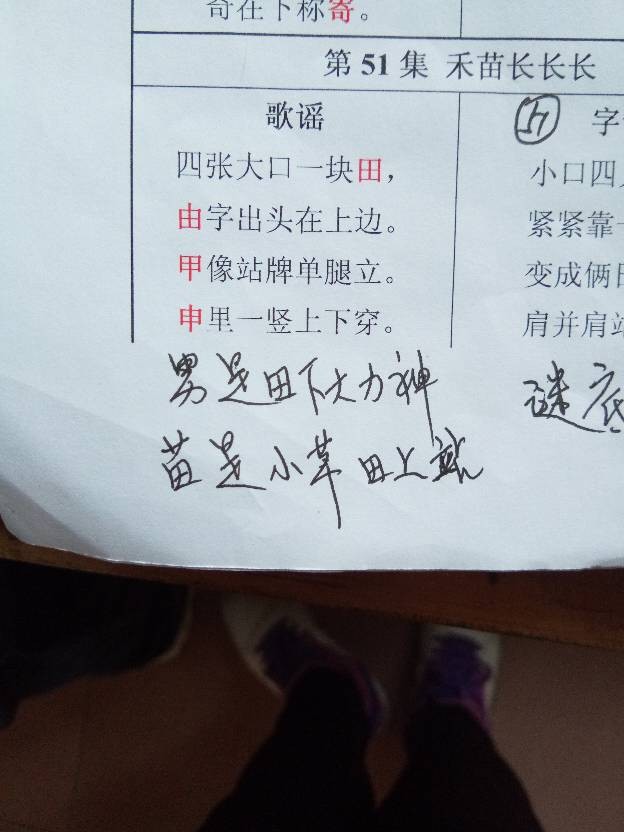 奇在下称寄。
第 51 集 禾苗长长长
歌谣
四张大口一块田，
由字出头在上边。
甲像站牌单腿立。
申里一竖上下穿。
男是田下大力神
苗是小草田上站
51 字
小口四
紧紧靠
变成俩
肩并肩站
谜底